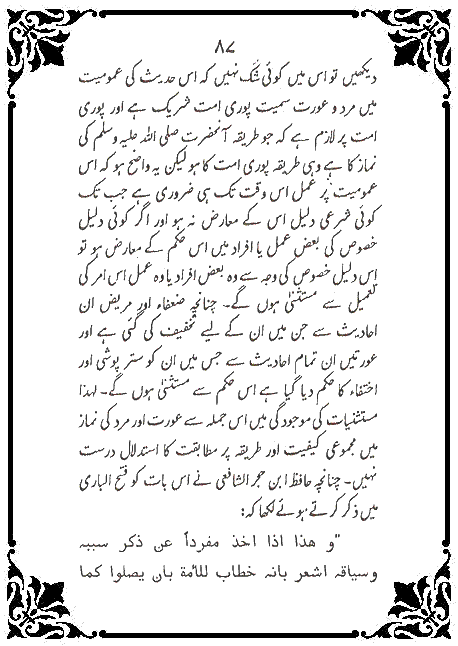 ۸۷
دیکھیں تو اس میں کوئی شک نہیں کہ اس حدیث کی عمومیت
میں مرد و عورت سمیت پوری امت شریک ہے اور پوری
امت پر لازم ہے کہ جو طریقہ آنحضرت صلی اللہ علیہ وسلم کی
نماز کا ہے وہی طریقہ پوری امت کا ہو لیکن یہ واضح ہو کہ اس
عمومیت پر عمل اس وقت تک ہی ضروری ہے جب تک
کوئی شرعی دلیل اس کے معارض نہ ہو اور اگر کوئی دلیل
خصوص کی بعض عمل یا افراد میں اس حکم کے معارض ہو تو
اس دلیل خصوص کی وجہ سے وہ بعض افراد یا وہ عمل اس امر کی
تعمیل سے مستثنیٰ ہوں گے۔ چنانچہ ضعفاء اور مریض ان
احادیث سے جن میں ان کے لیے تخفیف کی گئی ہے اور
عورتیں ان تمام احادیث سے جس میں ان کو ستر پوشی اور
اختفاء کا حکم دیا گیا ہے اس حکم سے مستثنیٰ ہوں گے۔ لہذا
مستثنیات کی موجودگی میں اس جملہ سے عورت اور مرد کی نماز
میں مجموعی کیفیت اور طریقہ پر مطابقت کا استدلال درست
نہیں۔ چنانچہ حافظ ابن حجر الشافعی نے اس بات کو فتح الباری
میں ذکر کرتے ہوئے لکھا کہ:
"و هذا اذا اخذ مفرداً عن ذکر سببہ
وسیاقہ اشعر بانہ خطاب للأمۃ بان یصلوا کما